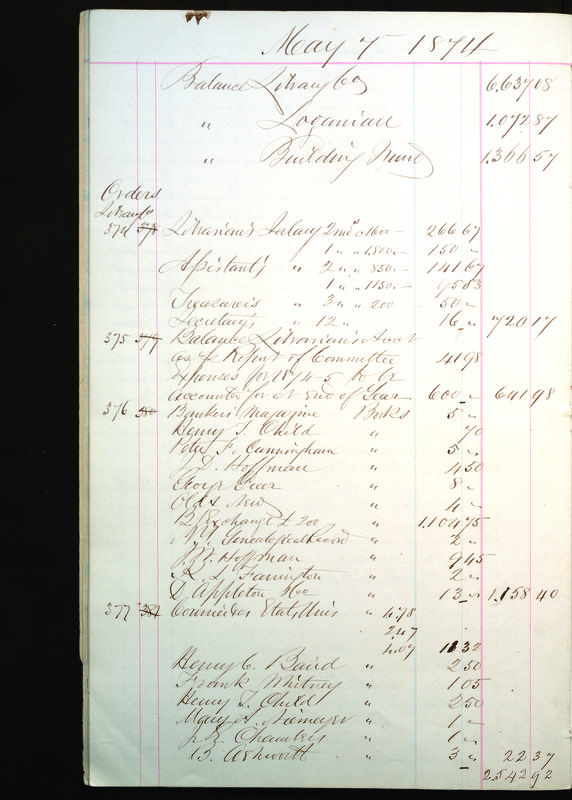 May 7 1874
Balance Library Co 6.637 08
" Loganian 1.072 87
" Building Fund 1.366 57
Orders
Library Co
374 378 Librarian's Salary 2 mos @ 1600.- 266 67
1 " " 1800.- 150 "
Assistant's " 2 " " 850.- 141 67
1 " " 1150.- 95 83
Treasurer's " 3 " " 200 50 "
Secretary's " 12 " 16 " 720 17
375 379 Balance Librarian's Acct
as pr Report of Committee 41 98
Expenses for 1874-5 to be
accounted for at End of Year 600 " 641 98
376 380 Bankers' Magazine Books 5 "
Henry T. Child " 70
Peter F. Cunningham " 5 "
J. D. Hoffman " 4 50
" 8 "
Old & New " 4 "
B/Exchange £ 200 " 1.104 75
N.Y. Genealogical Record " 2 "
J. W. Hoffman " 9 45
" 2 "
D. Appleton & Co " 13 " 1.158 40
377 381 Courrier des Etats Unis " 4.78
2.47
4.07 11 32
Henry C. Baird " 2 50
Frank Whitney " 1 05
Henry T. Child " 2 50
Mary A. Niemeyer " 1 "
Chambers " 1 "
B. Ashworth " 3 " 22 37
2.542 92